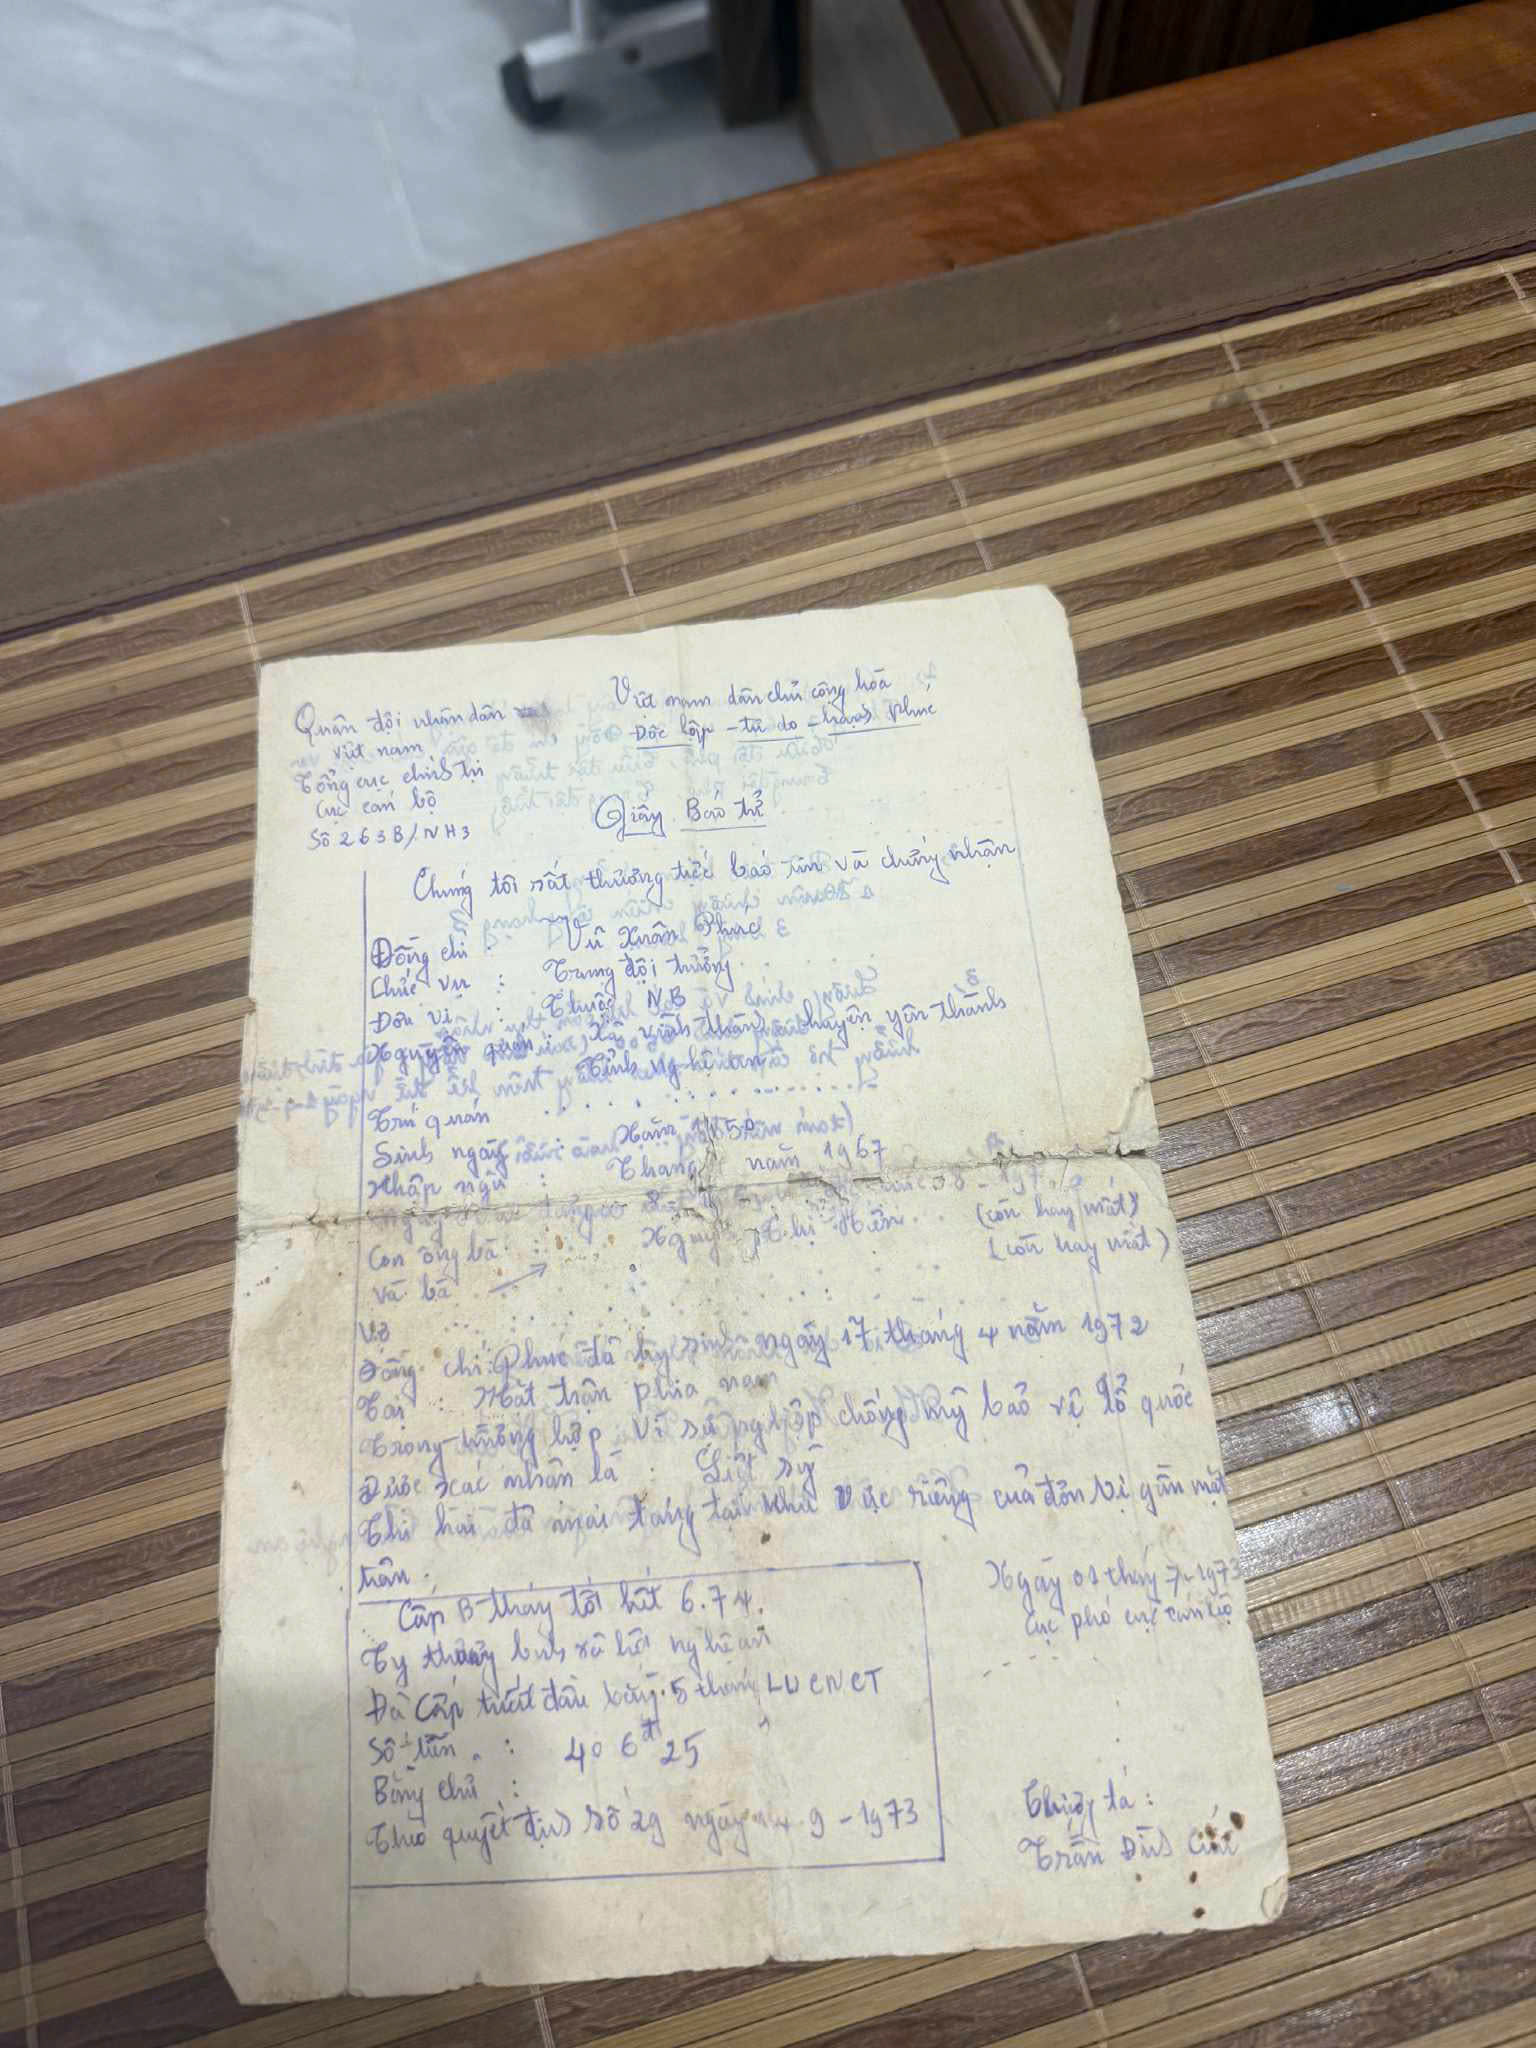 Việt nam dân chủ cộng hòa
Quân đội nhân dân
Độc lập - tự do - hạnh phúc
việt nam
Tổng cục chính trị
Cục cán bộ
Số 263B/NH3
Giấy Báo tử
Chúng tôi rất thương tiếc báo tin và chứng nhận
Đồng chí : Vũ Xuân Phúc
Chức vụ : Trung đội trưởng
Đơn vị : Thuộc NB
Nguyên quán : xã vĩnh thành huyện yên thành
Tỉnh nghệ an
Trú quán
Sinh ngày : Năm
Nhập ngũ : Tháng năm 1967
Con ông bà : Nguyễn Thị Hiên (còn hay mất)
và bà (còn hay mất)
Vợ
Đồng chí : Phúc đã hy sinh ngày 17 tháng 4 năm 1972
Tại : Mặt trận phía nam
Trong trường hợp Vì sự nghiệp chống mỹ bảo vệ tổ quốc
Được xác nhận là : Liệt sỹ
Thi hài đã mai táng tại khu vực riêng của đơn vị gần mặt
trận.
Ngày 01 tháng 7-1973
Cục phó cục cán bộ
Cấp B tháng tới hết 6.74.
Ty thương binh xã hội nghệ an
Đã cấp tuất đầu bằng 5 tháng LUCNCT
Số tiền : 40 6đ 25
Bằng chữ :
Theo quyết định số 29 ngày 14-9-1973
Thượng tá :
Trần Đình